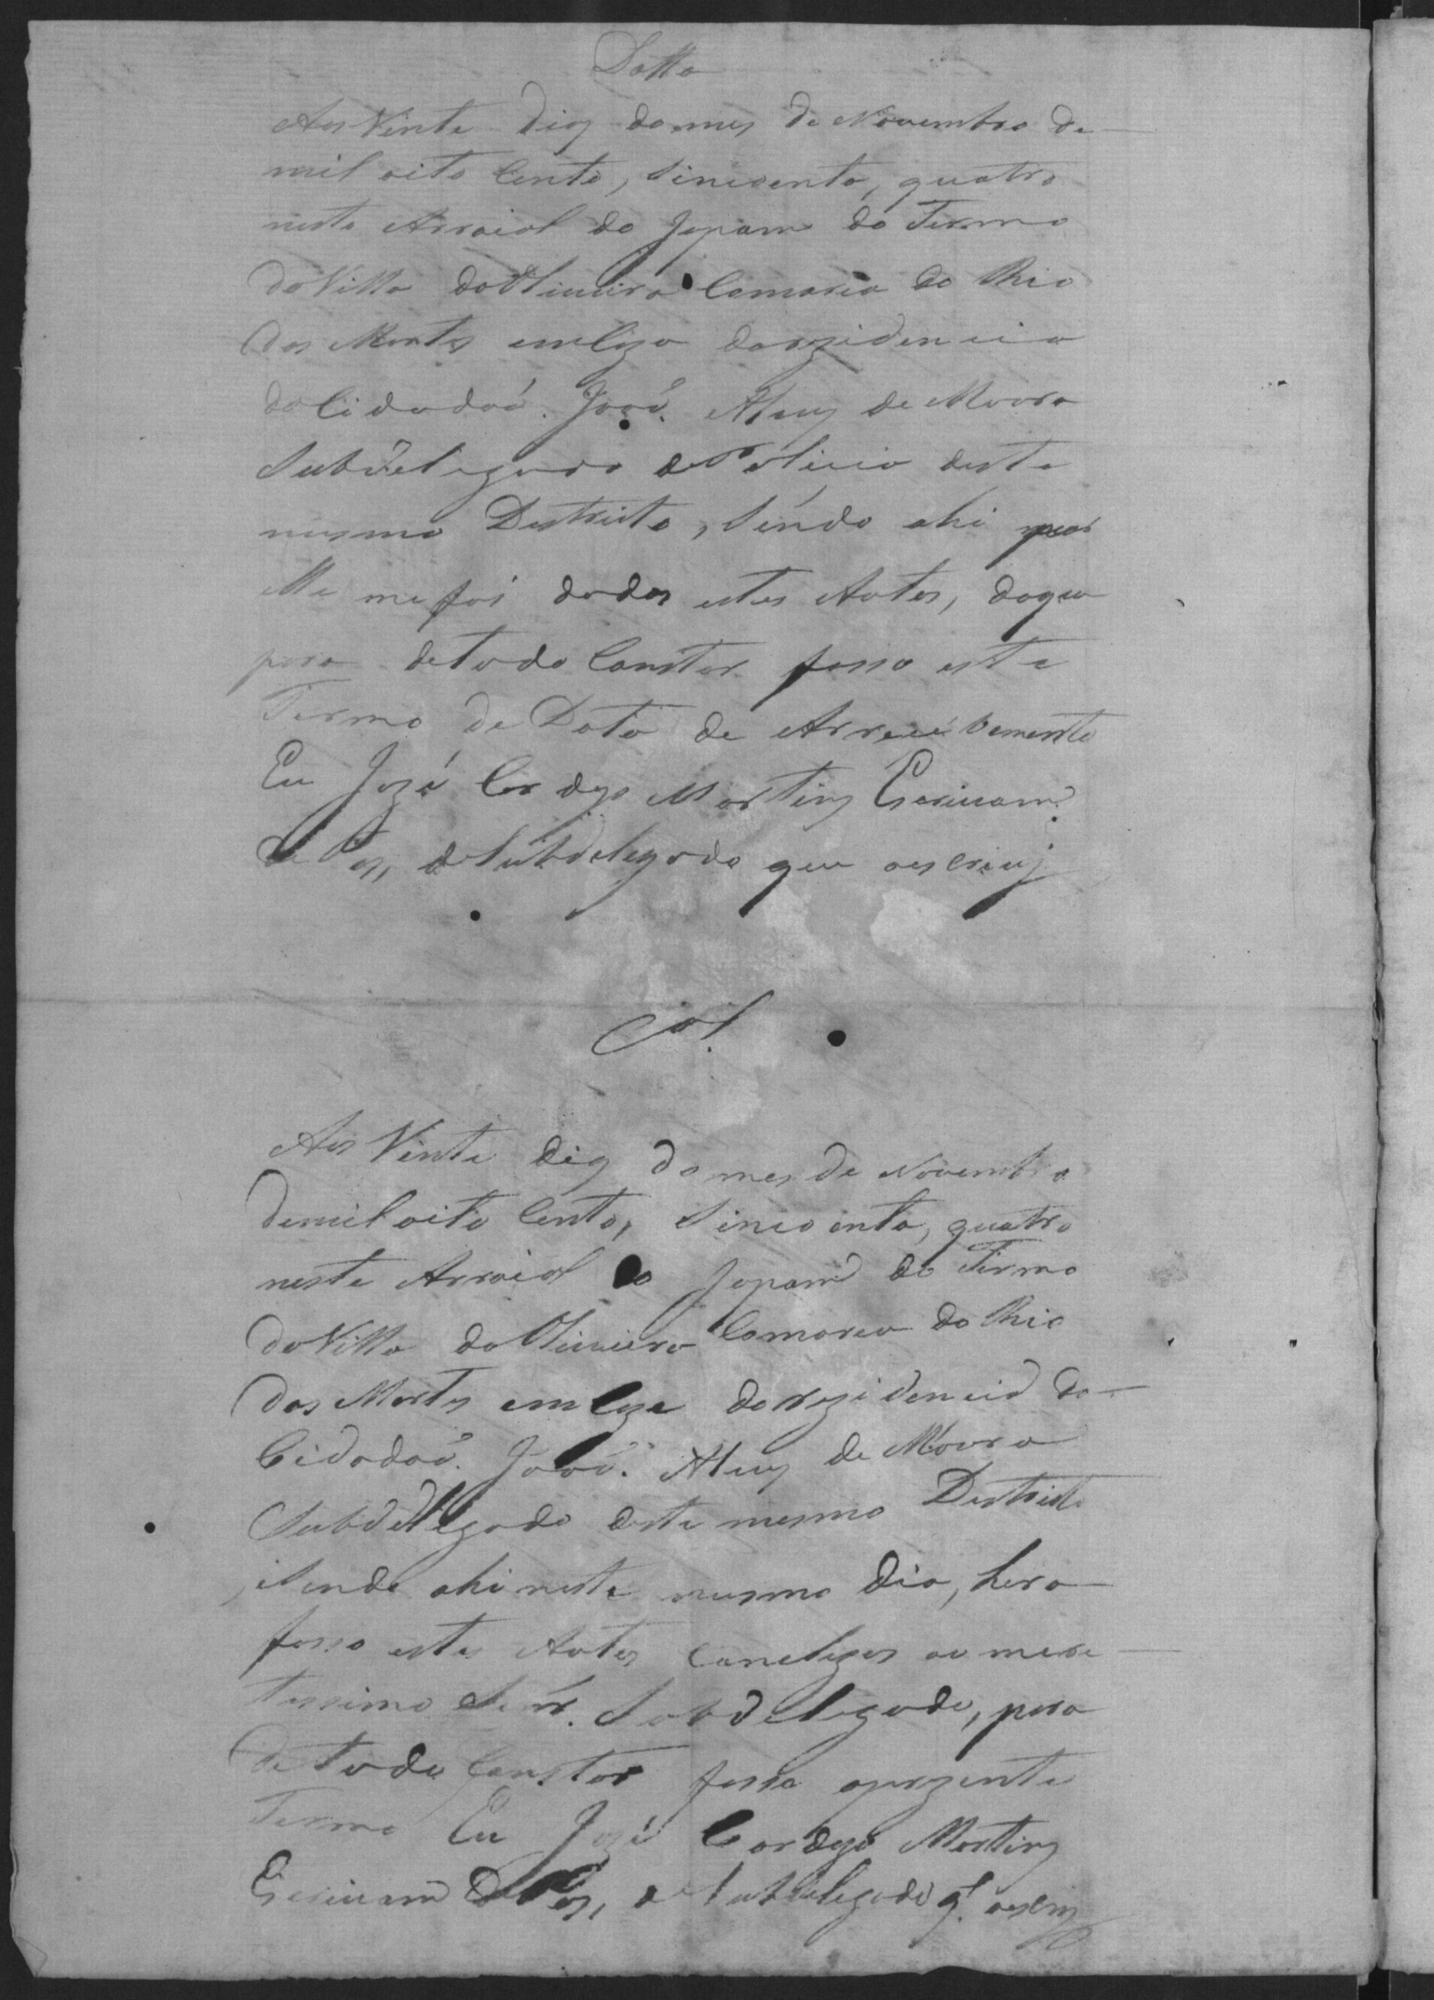 Datta
Aos Vinte dias domes de Novembro de
mil oito Cento, Sincoenta, quatro
neste Arraial do Japam do Termo
da Villa da Oliveira Comarca do Rio
das Mortes em Caza darezidencia
do Cidadaó. Joaó. Alves de Moura
Subdelegado de Policia deste
mesmo Destricto, Séndo ahi por
elle me foi dados estes Autos, doque
para detudo Constar fasso este
Termo de Data de Arrecebemento
Eu Jozé Cardozo Martins Escrivam.
de Pas, e Subdelegado que oescrivj
Col.
Aos Vinte dias do mes de Novembro
demil oito Cento, Sincoenta, quatro
neste Arraial do Japam do Termo
da Villa da Oliveira Comarca do Rio
das Mortes em Caza darezidencia do
Cidadaó. Joaó. Alves de Moura
Subdelegado deste mesmo Destricto
Sendo ahi neste mesmo dia, hera
fasso estes Autos Concluzos ao mere
tissimo Senr. Subdelegado, para
detudo Constar fasso oprezente
Termo Eu Jozé Cardozo Martins
Escrivam de Pas, e Subdelegado q. oescrivj